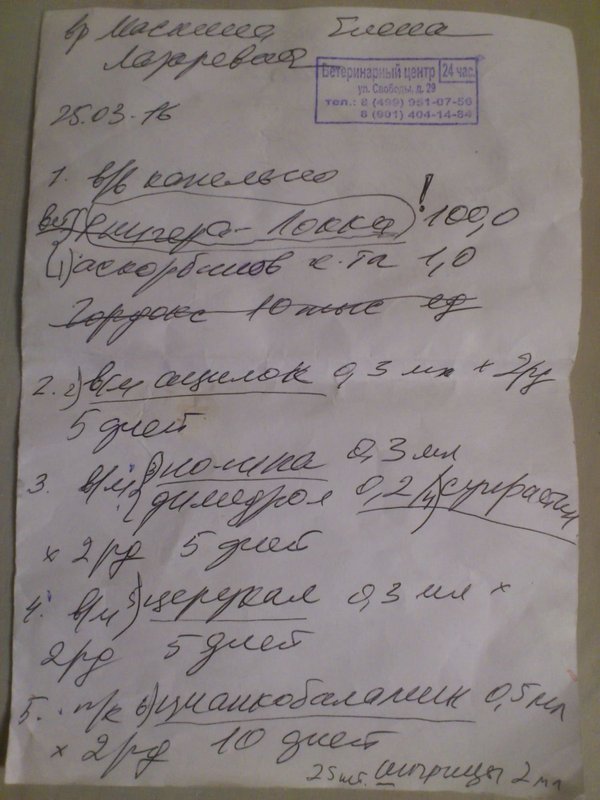 вр Маскина Елена
Лазаревна
Ветеринарный центр 24 час.
ул. Свободы, д. 29
тел.: 8 (499) 951-07-56
8 (901) 404-14-84
25.03.16
1. в/в капельно
Рингера-Локка ! 100,0
1) аскорбинов к-та 1,0
Гордокс 10 тыс ед
2. 2) в/м ацилок 0,3 мл × 2 р/д
5 дней
3. в/м 3) но-шпа 0,3 мл
димедрол 0,2 / 4) супрастин
× 2 р/д 5 дней
4. в/м 5) церукал 0,3 мл ×
2 р/д 5 дней
5. п/к 6) цианкобаламин 0,5 мл
× 2 р/д 10 дней
25 шт. шприцы 2 мл